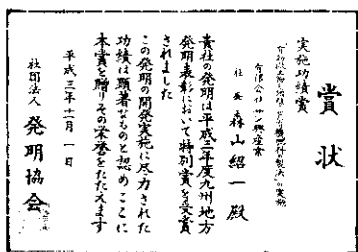 賞状
実施功績賞
社長 森山紹一殿
貴社の発明は平成三年度九州地方
発明表彰において特別賞を受賞
されました
この発明の開発実施に尽力された
功績は顕著なものと認めここに
本賞を贈りその栄誉をたたえます
平成三年十一月一日
社団法人 発明協会